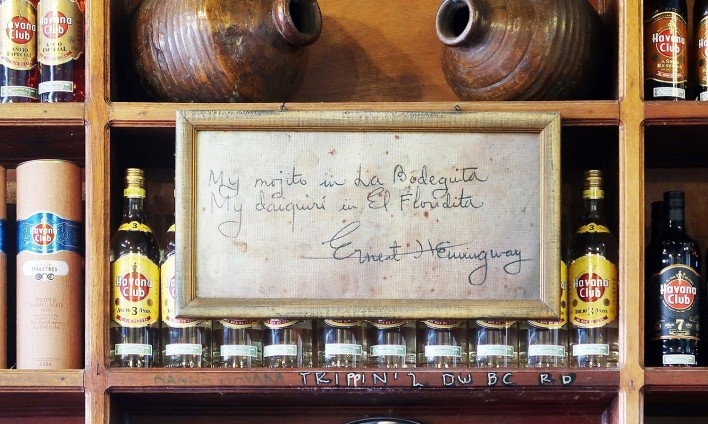 Havana Club
Havana Club
AÑEJO ESPECIAL
Havana Club
Havana Club
Havana Club
My mojito in La Bodeguita
My daiquiri in El Floridita
Ernest Hemingway
Havana Club
AÑEJO 3 AÑOS
3
Havana Club
AÑEJO 3 AÑOS
3
Havana Club
7
TRIPPIN' 2 DW BC RD